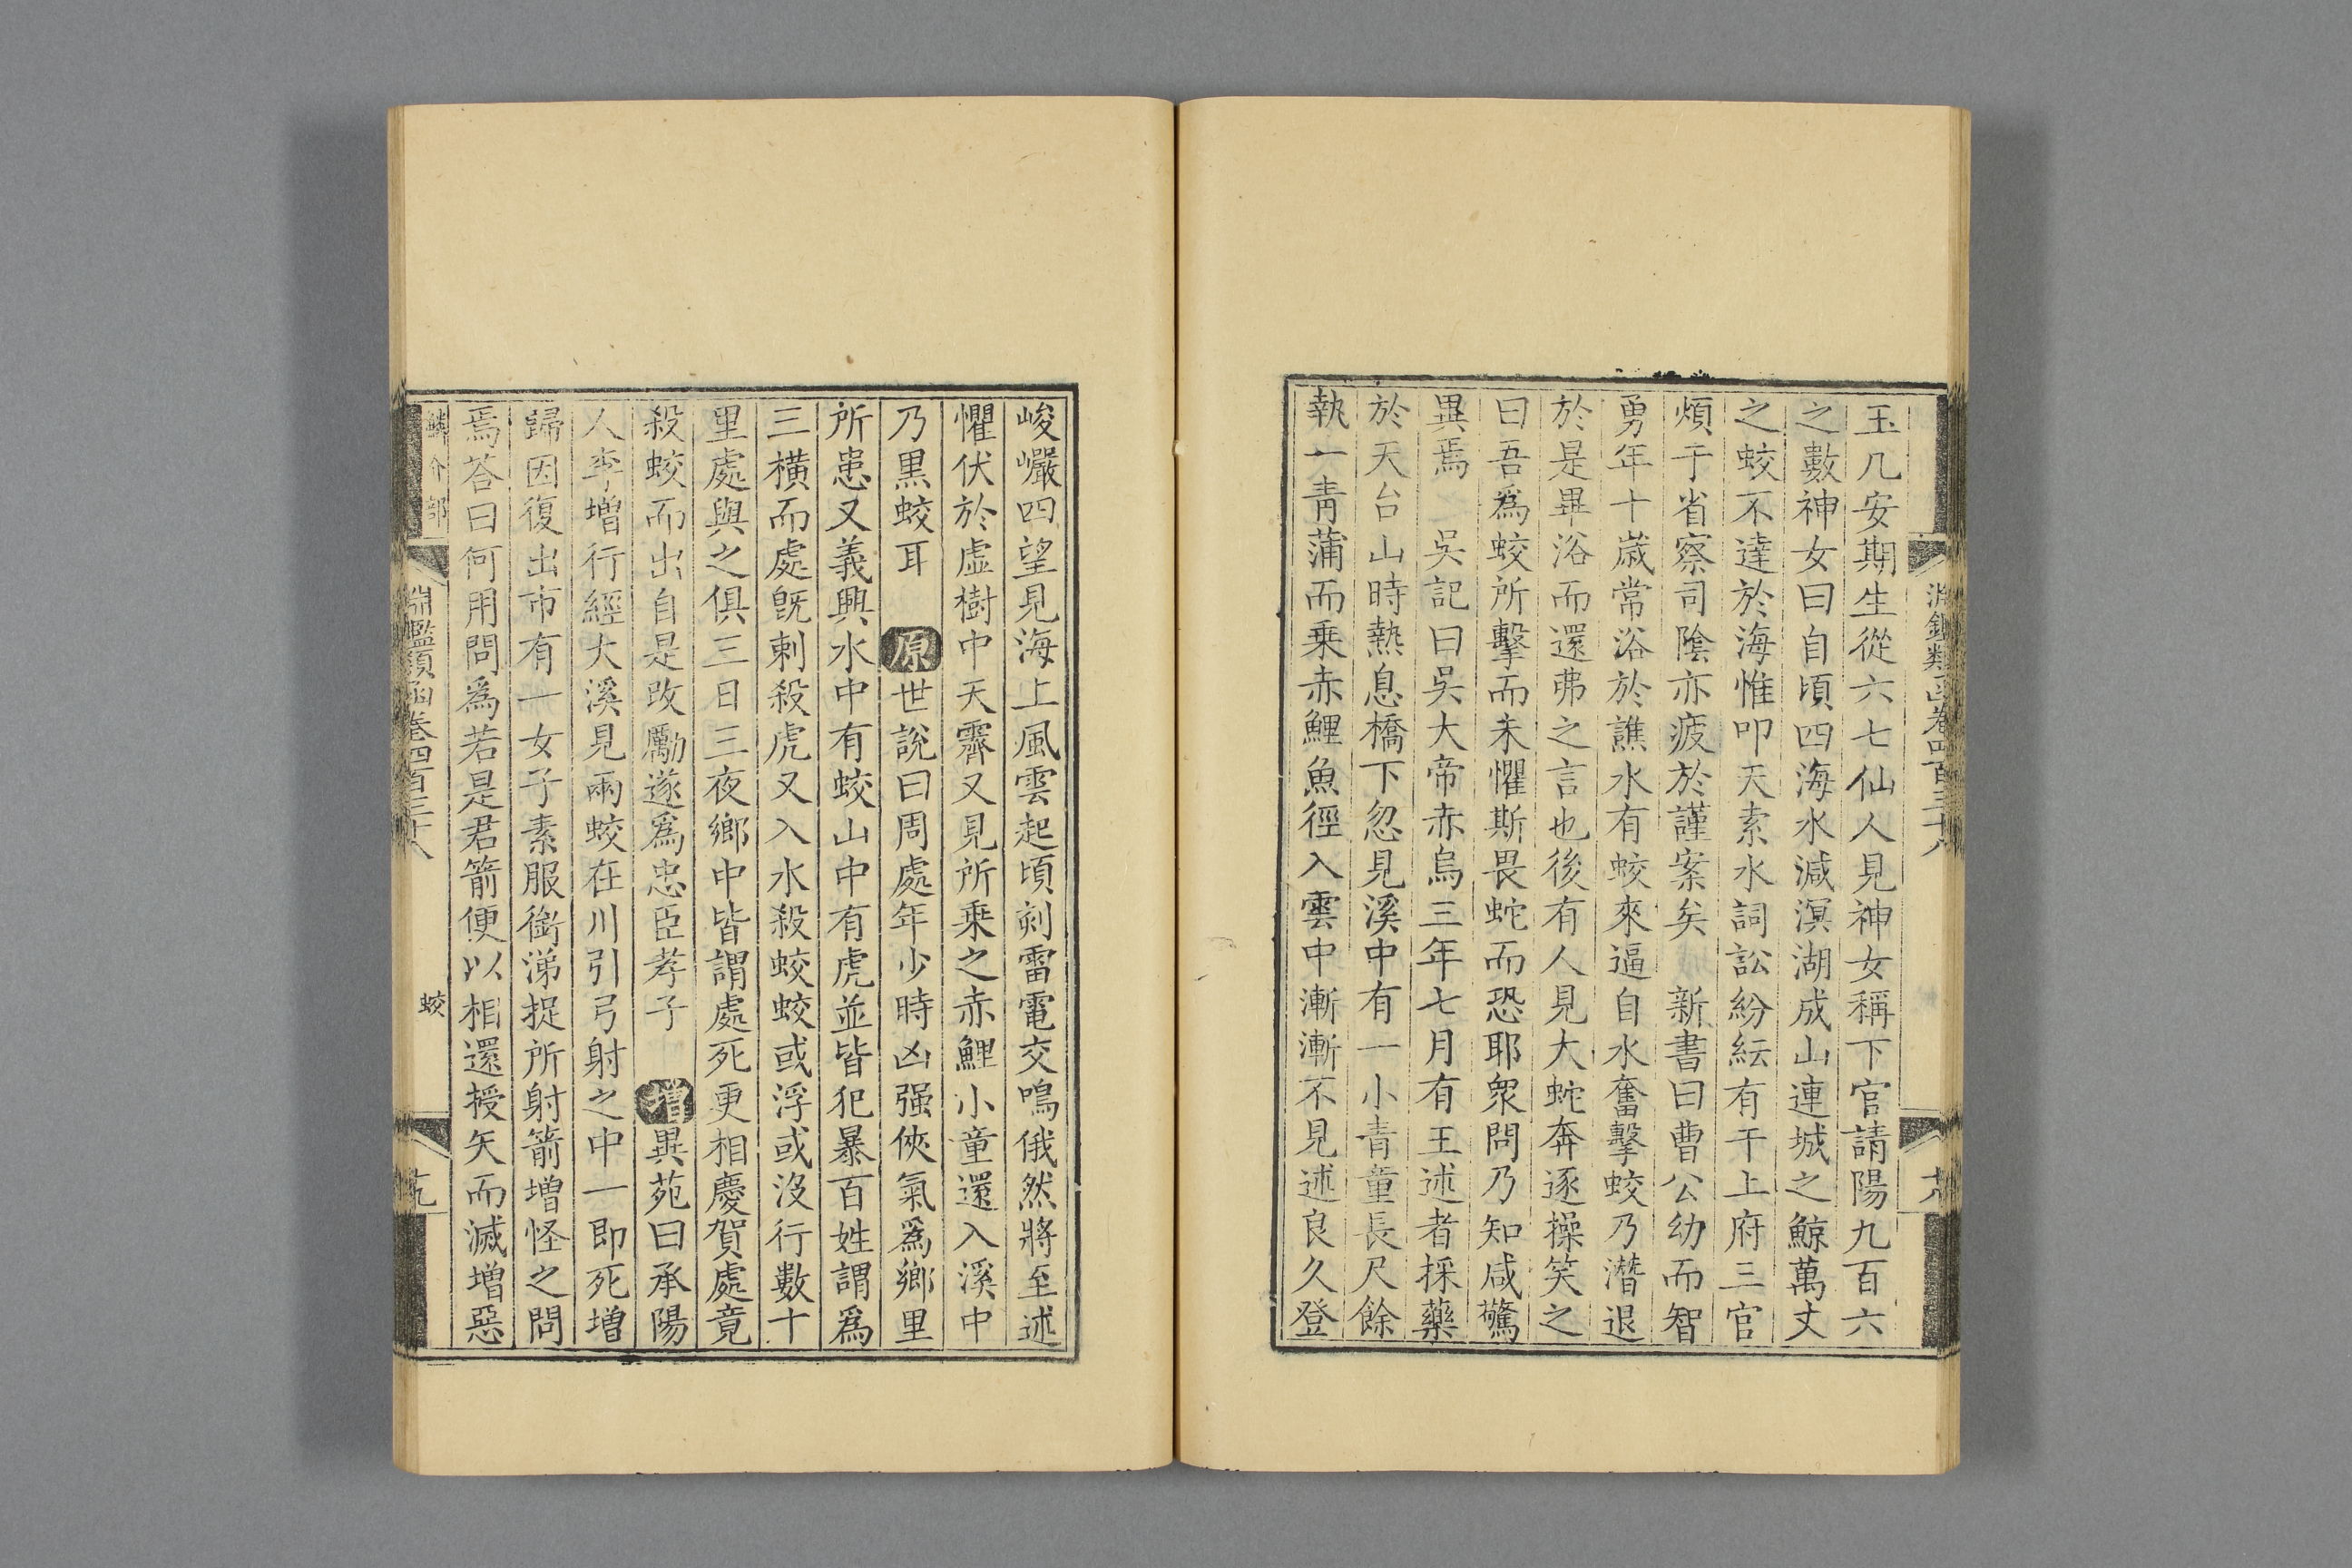 淵鑑類函卷四百三十八
玉几安期生從六七仙人見神女稱下官請陽九百六
之數神女曰自頃四海水減溟湖成山連城之鯨萬丈
之蛟不達於海惟叩天索水詞訟紛紜有干上府三官
煩于省察司陰亦疲於謹案矣　新書曰曹公幼而智
勇年十歲常浴於譙水有蛟來逼自水奮擊蛟乃潛退
於是畢浴而還弗之言也後有人見大蛇奔逐操笑之
曰吾爲蛟所擊而未懼斯畏蛇而恐耶衆問乃知咸驚
異焉　吳記曰吳大帝赤烏三年七月有王述者採藥
於天台山時熱息橋下忽見溪中有一小青童長尺餘
執一青蒲而乗赤鯉魚徑入雲中漸漸不見述良久登
峻巖四望見海上風雲起頃刻雷電交鳴俄然將至述
懼伏於虛樹中天霽又見所乗之赤鯉小童還入溪中
乃黑蛟耳　原世說曰周處年少時凶强俠氣爲鄉里
所患又義興水中有蛟山中有虎並皆犯暴百姓謂爲
三橫而處旣刺殺虎又入水殺蛟蛟或浮或沒行數十
里處與之俱三日三夜鄉中皆謂處死更相慶賀處竟
殺蛟而出自是改勵遂爲忠臣孝子　增異苑曰承陽
人李增行經大溪見兩蛟在川引弓射之中一即死增
歸因復出市有一女子素服銜涕捉所射箭增怪之問
焉荅曰何用問爲若是君箭便以相還授矢而滅增惡
鱗介部
淵鑑類函卷四百三十八
蛟